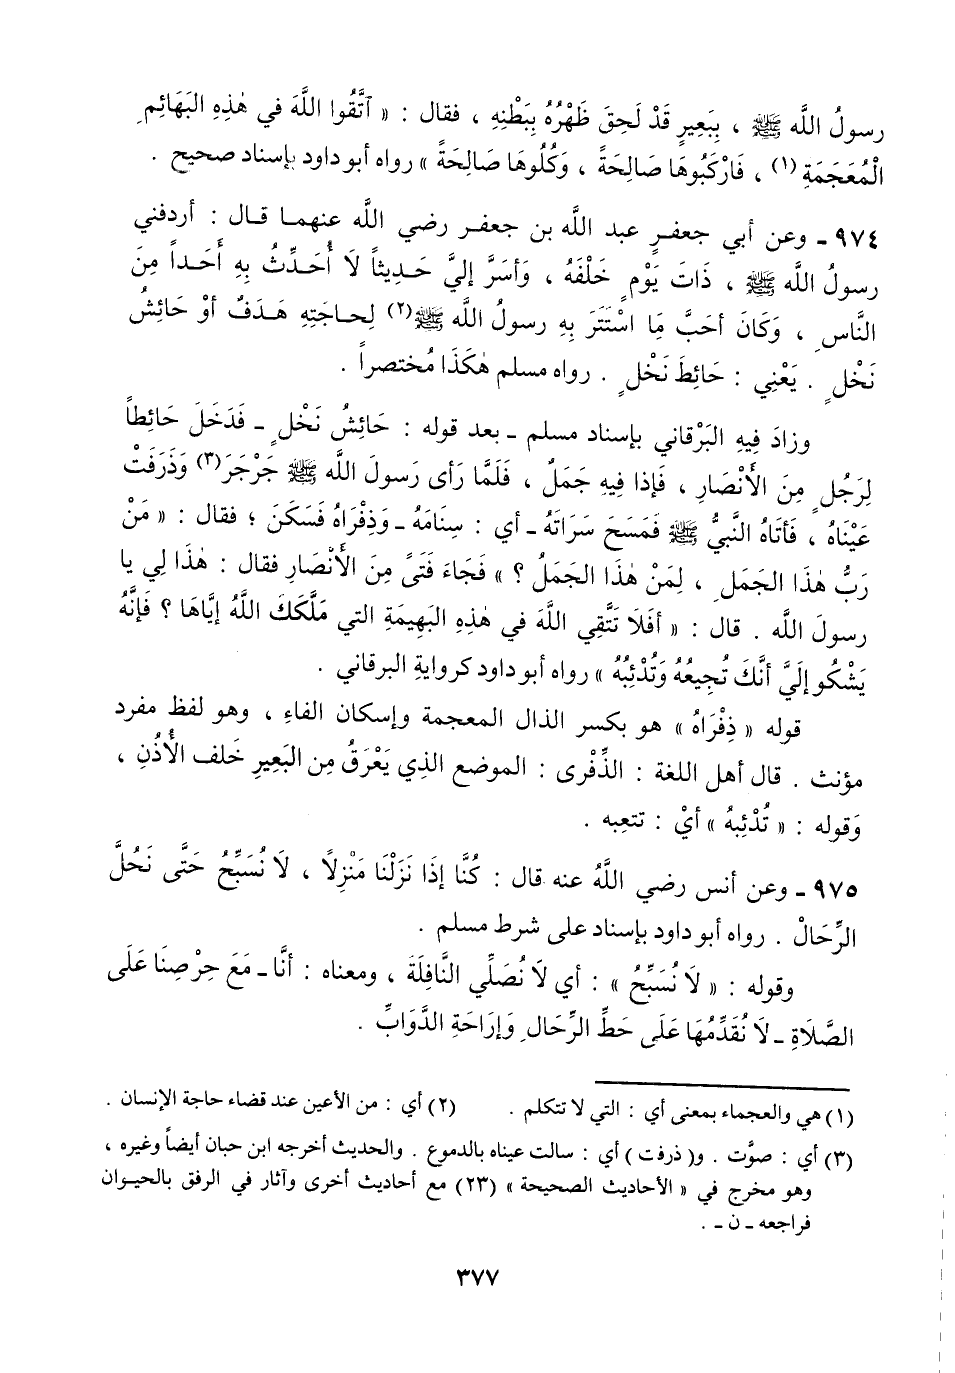 رسولُ اللَّه ﷺ ، بِبَعِيرٍ قَدْ لَحِقَ ظَهْرُهُ بِبَطْنِهِ ، فقال : « آتَّقُوا اللَّهَ في هٰذِهِ البَهَائِمِ
الْمُعَجَمَةِ (١) ، فَارْكَبُوهَا صَالِحَةً ، وَكُلُوهَا صَالِحَةً » رواه أبو داود بإسناد صحيح .
٩٧٤ ـ وعن أبي جعفرٍ عبد اللَّه بن جعفر رضي اللَّه عنهما قال : أردفني
رسولُ اللَّه ﷺ ، ذَاتَ يَوْمٍ خَلْفَهُ ، وَأسَرَّ إليَّ حَدِيثاً لَا أُحَدِّثُ بِهِ أَحَداً مِنَ
النَّاسِ ، وَكَانَ أحَبَّ مَا اسْتَتَرَ بِهِ رسولُ اللَّه ﷺ(٢) لِحاجَتِهِ هَدَفٌ أوْ حَائِشُ
نَخْلٍ . يَعْنِي : حَائِطَ نَخْلٍ . رواه مسلم هٰكَذَا مُختصراً .
وزادَ فِيهِ البَرْقاني بإسناد مسلم ـ بعد قوله : حَائِشُ نَخْلٍ ـ فَدَخَلَ حَائِطاً
لِرَجُلٍ مِنَ الأَنْصَارِ ، فَإذا فِيهِ جَمَلٌ ، فَلَمَّا رَأى رَسولَ اللَّه ﷺ جَرْجَرَ(٣) وَذَرَفَتْ
عَيْنَاهُ ، فَأتَاهُ النَّبيُّ ﷺ فَمَسَحَ سَرَاتَهُ ـ أي : سِنَامَهُ ـ وَذِفْرَاهُ فَسَكَنَ ؛ فقال : « مَنْ
رَبُّ هٰذَا الجَمَلِ ، لِمَنْ هٰذَا الجَمَلُ ؟ » فَجَاءَ فَتَىً مِنَ الأَنْصَارِ فقال : هٰذَا لي يا
رسولَ اللَّه . قال : « أفَلَا تَتَّقِي اللَّهَ في هٰذِهِ البَهِيمَةِ التي مَلَّكَكَ اللَّهُ إيَّاهَا ؟ فَإنَّهُ
يَشْكُو إلَيَّ أنَّكَ تُجِيعُهُ وَتُدْئِبُهُ » رواه أبو داود كروايةِ البرقاني .
قوله « ذِفْرَاهُ » هو بكسر الذال المعجمة وإسكان الفاءِ ، وهو لفظ مفرد
مؤنث . قال أهل اللغة : الذِّفْرى : الموضع الذِي يَعْرَقُ مِن البَعِيرِ خَلف الأُذُنِ ،
وَقوله : « تُدْئِبهُ » أيْ : تتعِبه .
٩٧٥ ـ وعن أنس رضي اللَّهُ عنه قال : كُنَّا إذَا نَزَلْنَا مَنْزِلًا ، لَا نُسَبِّحُ حَتَّى نَحُلَّ
الرِّحَالْ . رواه أبو داود بإسناد على شرط مسلم .
وقوله : « لَا نُسَبِّحُ » : أي لَا نُصَلِّي النَّافِلَةَ ، ومعناه : أنَّا ـ مَعَ حِرْصِنَا عَلَى
الصَّلَاةِ ـ لَا نُقَدِّمُهَا عَلَى حَطِّ الرِّحَالِ وَإرَاحَةِ الدَّوَابِّ .
(١) هي والعجماء بمعنى أي : التي لا تتكلم . (٢) أي : من الأعين عند قضاء حاجة الإنسان .
(٣) أي : صوَّت . و( ذرفت ) أي : سالت عيناه بالدموع . والحديث أخرجه ابن حبان أيضاً وغيره ،
وهو مخرج في « الأحاديث الصحيحة » (٢٣) مع أحاديث أخرى وآثار في الرفق بالحيوان
فراجعه ـ ن ـ .
٣٧٧